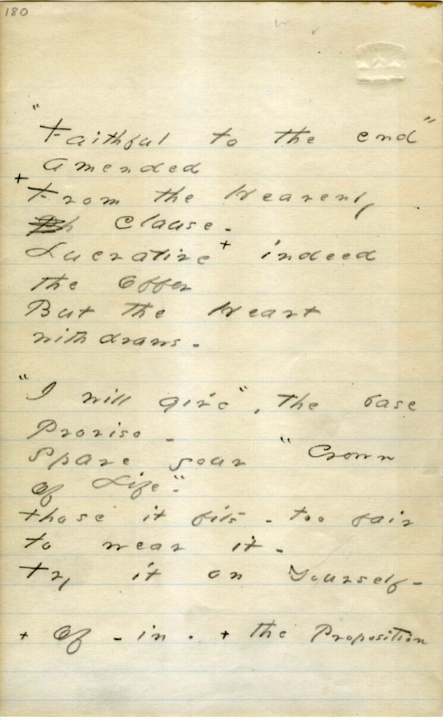 180
"Faithful to the end"
Amended
+ From the Heavenly
Clause -
Lucrative + indeed
the Offer
But the Heart
withdraws -
"I will give", the base
Proviso -
Spare your "Crown
of Life"-
Those it fits - too fair
to wear it -
Try it on Yourself -
+ Of - in - + the Proposition